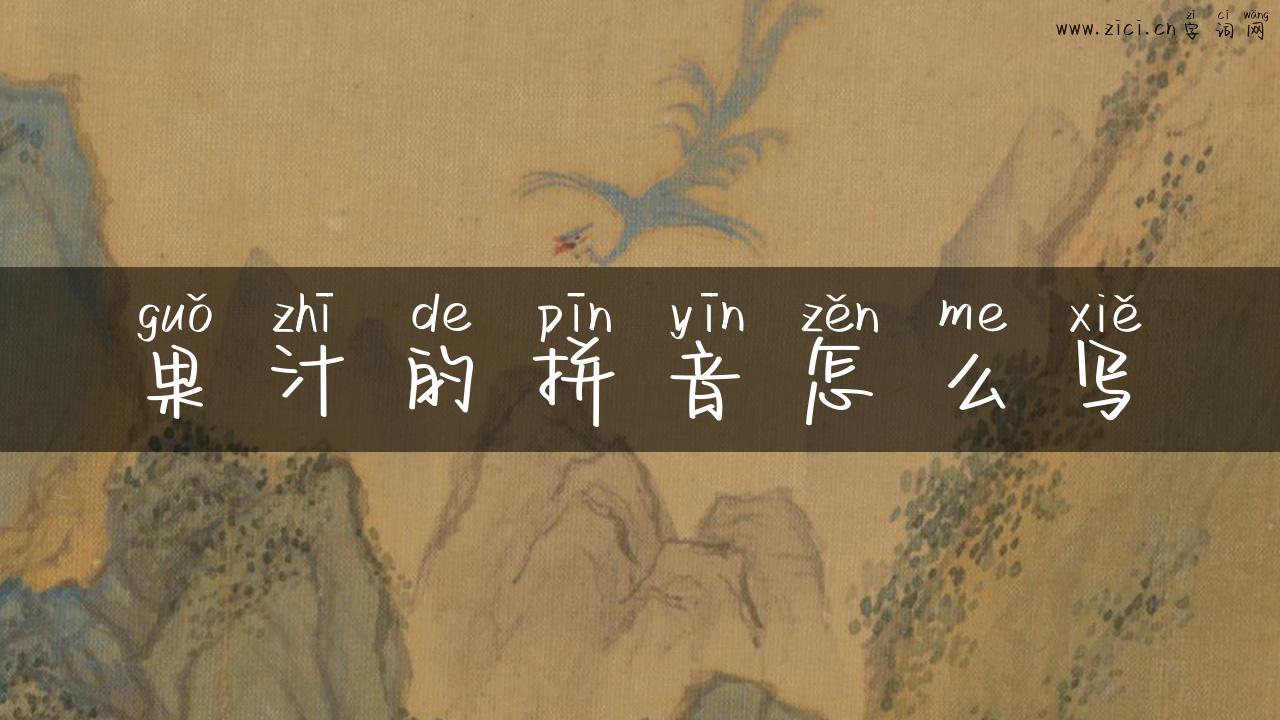 zì cí wǎng
www.zici.cn字词网
guǒ zhī de pīn yīn zěn me xiě
果汁的拼音怎么写